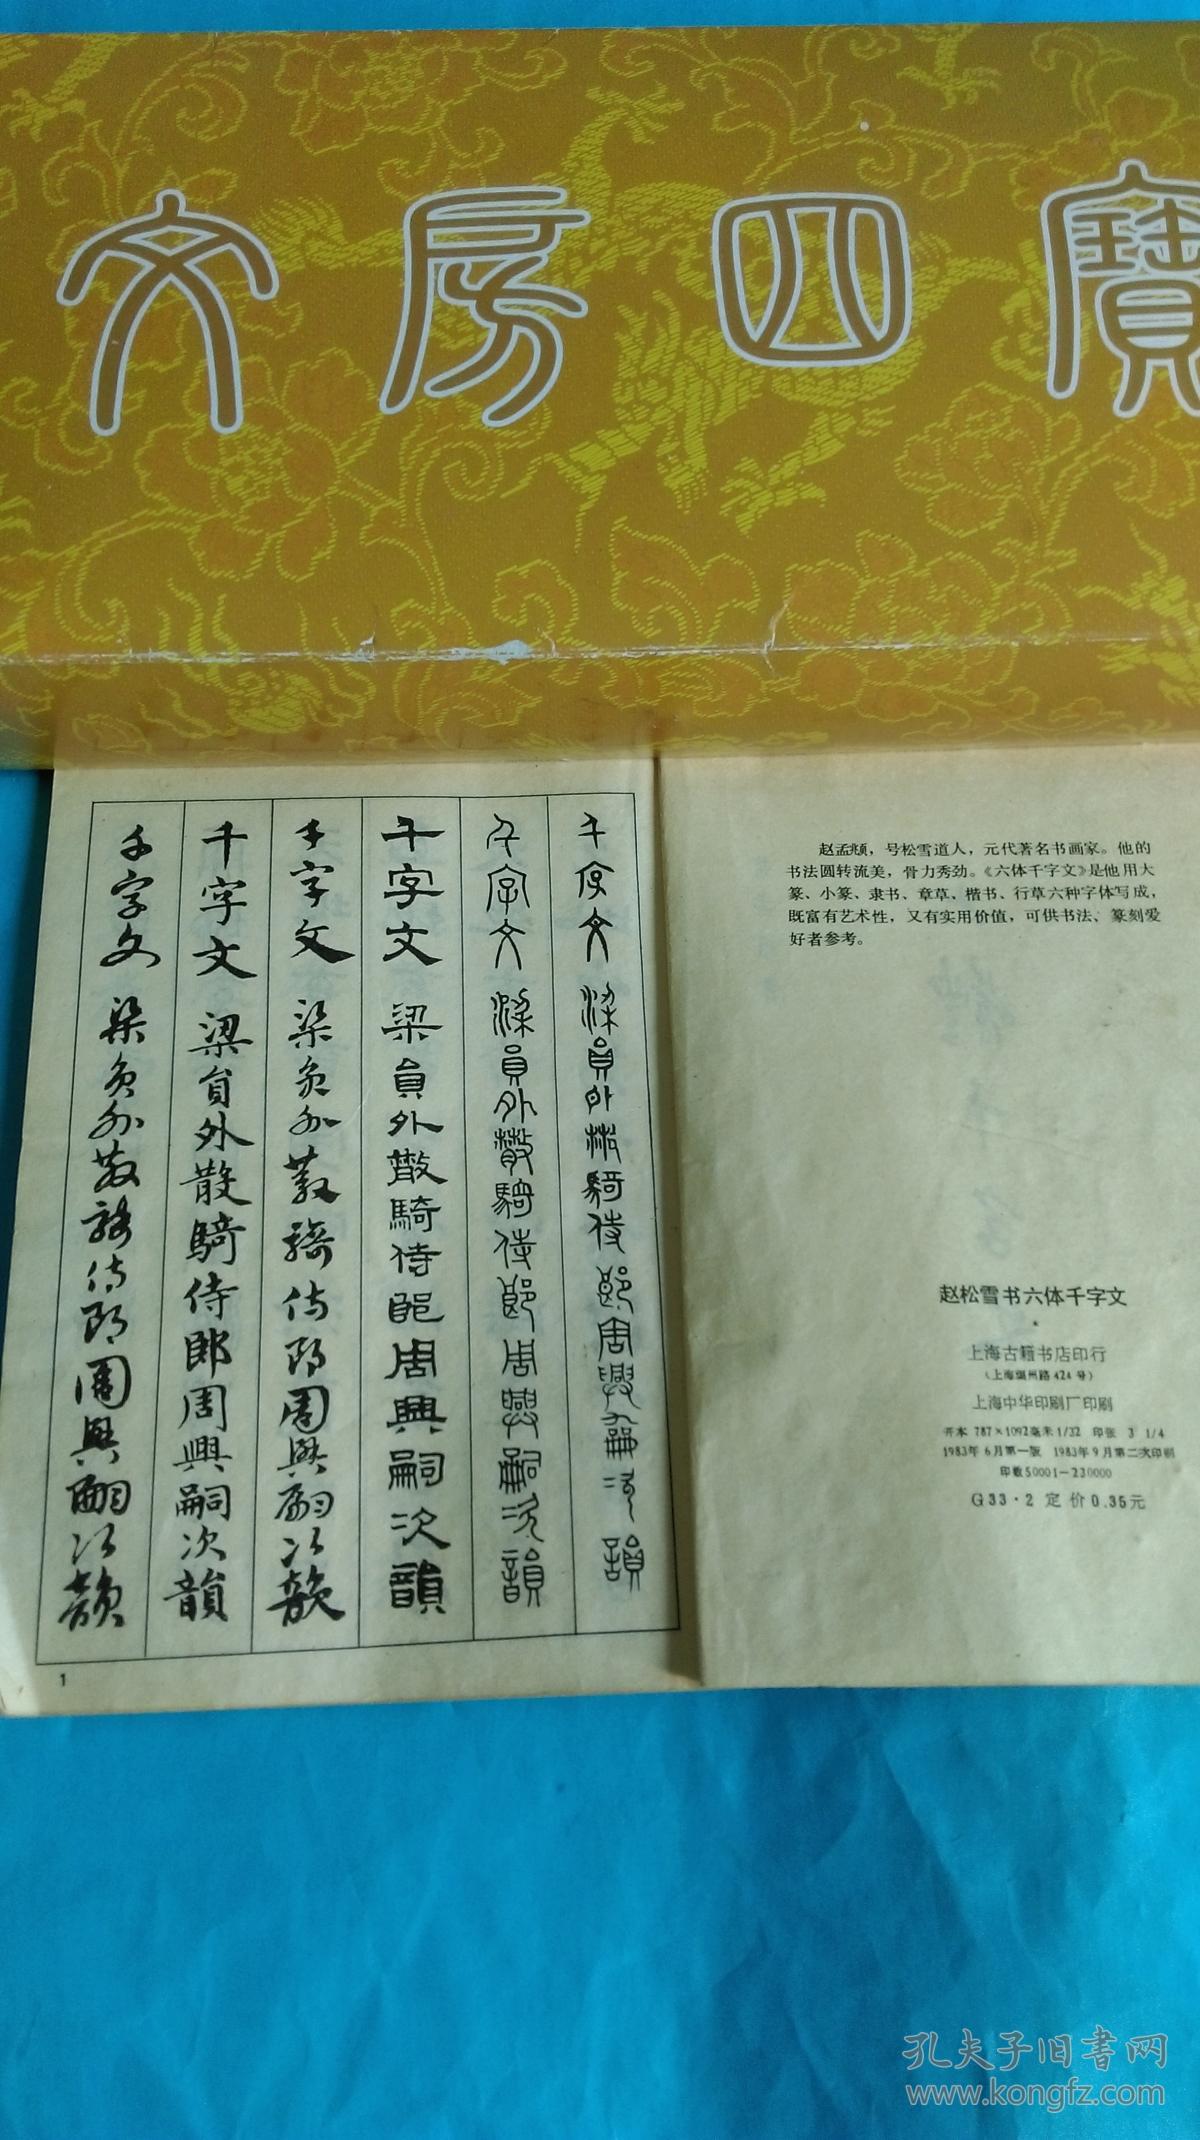 文房四寶
千字文 梁員外散騎侍郎周興嗣次韻
千字文 梁員外散騎侍郎周興嗣次韻
千字文 梁員外散騎侍郎周興嗣次韻
千字文 梁員外散騎侍郎周興嗣次韻
千字文 梁員外散騎侍郎周興嗣次韻
千字文 梁員外散騎侍郎周興嗣次韻
1
赵孟頫，号松雪道人，元代著名书画家。他的
书法圆转流美，骨力秀劲。《六体千字文》是他用大
篆、小篆、隶书、章草、楷书、行草六种字体写成，
既富有艺术性，又有实用价值，可供书法、篆刻爱
好者参考。
赵松雪书六体千字文
上海古籍书店印行
（上海福州路424号）
上海中华印刷厂印刷
开本 787×1092毫米1/32 印张 3 1/4
1983年6月第一版 1983年9月第二次印刷
印数50001—230000
G33·2 定价0.35元
孔夫子旧书网
www.kongfz.com